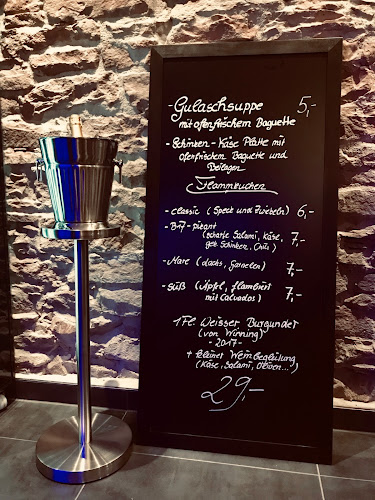 - Gulaschsuppe 5,-
mit ofenfrischem Baguette
- Schinken - Käse Platte mit
ofenfrischem Baguette und
Beilagen
Flammkuchen
- classic (Speck und Zwiebeln) 6,-
- B17 - pikant 7,-
(scharfe Salami, Käse,
gek. Schinken, Chili)
- Mare (Lachs, Garnelen) 7,-
- Süß (Apfel, flambiert 7,-
mit Calvados)
1 Fl. Weisser Burgunder
(von Winning)
- 2017 -
+ kleiner Weinbegleitung
(Käse, Salami, Oliven...)
29,-